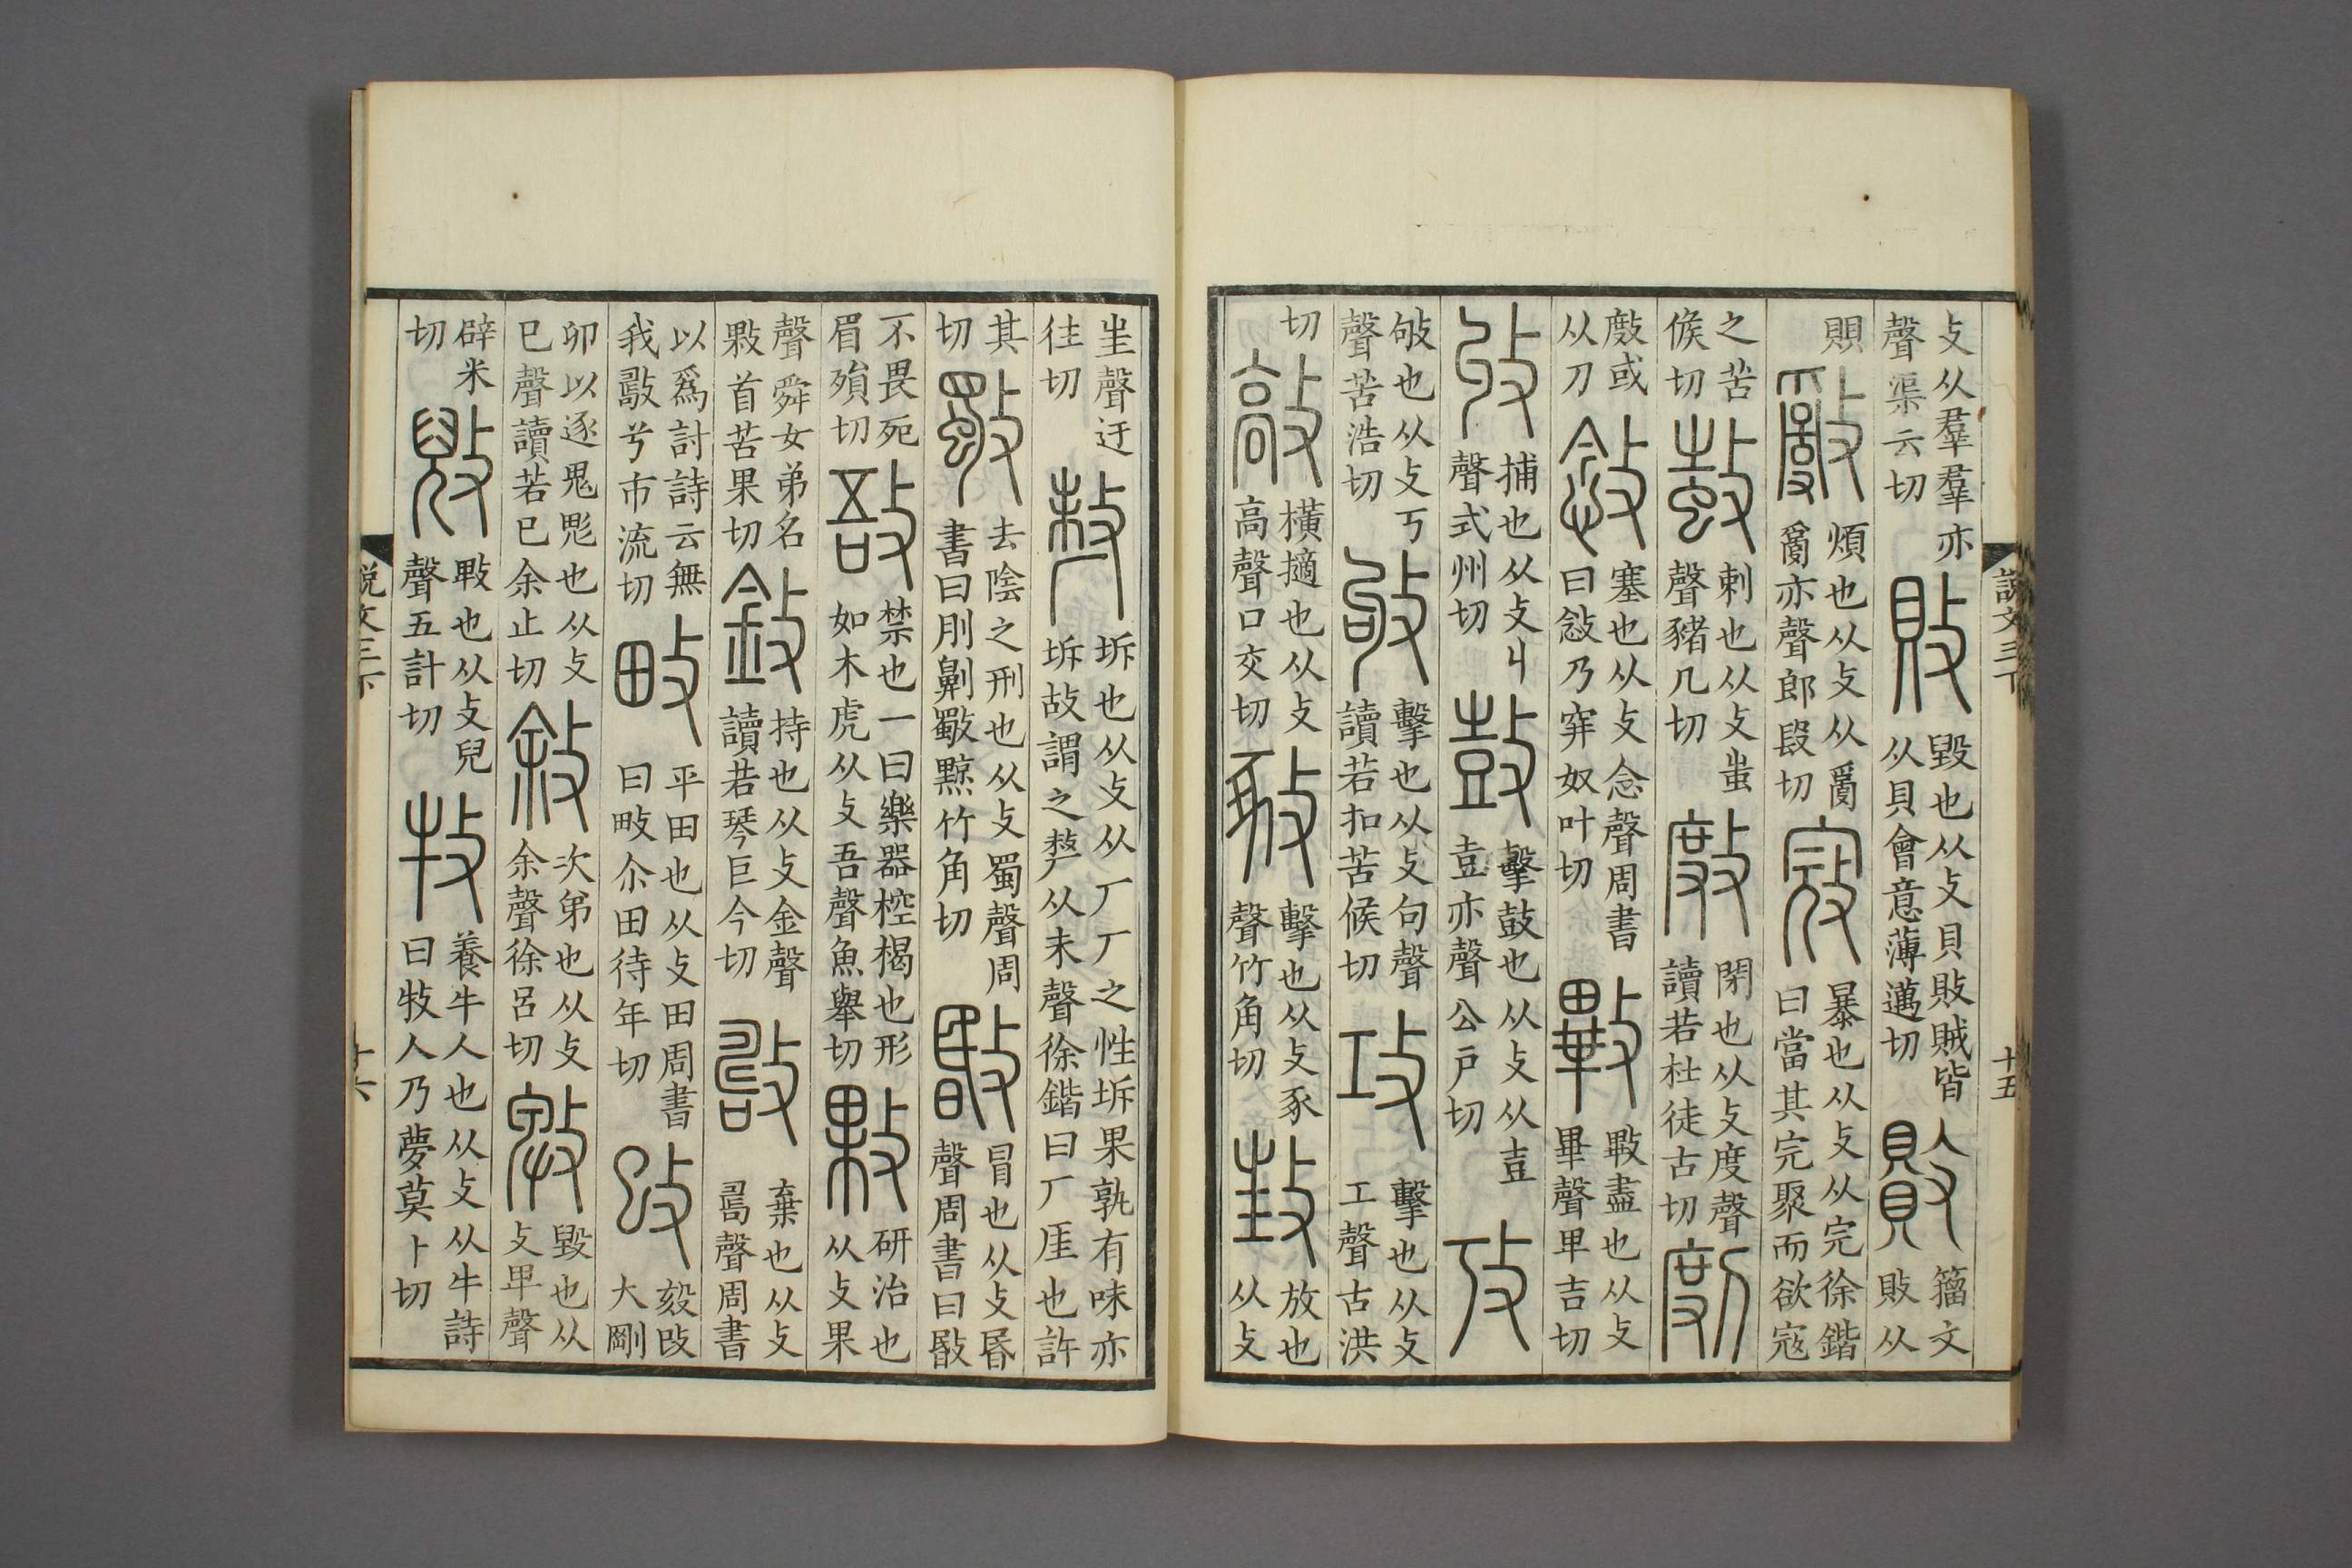 攴从羣羣亦聲渠云切 敗 毀也从攴貝敗賊皆从貝會意薄邁切 𣀕 籒文敗从
賏 𢿢 煩也从攴从𤔔𤔔亦聲郎段切 寇 暴也从攴从完徐鍇曰當其完聚而欲寇
之苦候切 刺也从攴蚩聲豬几切 𢾖 閉也从攴度聲讀若杜徒古切 剫
𢾖或从刀 敜 塞也从攴念聲周書曰敜乃穽奴叶切 㪤 㪤盡也从攴畢聲卑吉切
收 捕也从攴丩聲式州切 鼓 擊鼓也从攴从壴壴亦聲公戶切 攷
敂也从攴丂聲苦浩切 敂 擊也从攴句聲讀若扣苦候切 攻 擊也从攴工聲古洪
切 敲 橫擿也从攴高聲口交切 擊也从攴豖聲竹角切 放也从攴
㞷聲迂往切 𠩺 坼也从攴从厂厂之性坼果孰有味亦坼故謂之𠩺从未聲徐鍇曰厂厓也許
其切 斀 去陰之刑也从攴蜀聲周書曰刖劓斀黥竹角切 敯 冒也从攴昬聲周書曰敯
不畏死眉殞切 敔 禁也一曰樂器椌楬也形如木虎从攴吾聲魚舉切 敤 研治也从攴果
聲舜女弟名敤首苦果切 持也从攴金聲讀若琴巨今切 棄也从攴𠷎聲周書
以爲討詩云無我兮市流切 畋 平田也从攴田周書曰畋尒田待年切 攺 㱾攺大剛
卯以逐鬼鬽也从攴巳聲讀若巳余止切 敘 次弟也从攴余聲徐呂切 毀也从攴卑聲
辟米切 㪒 㪒也从攴兒聲五計切 牧 養牛人也从攴从牛詩曰牧人乃夢莫卜切
說文三下 十五
說文三下 十六